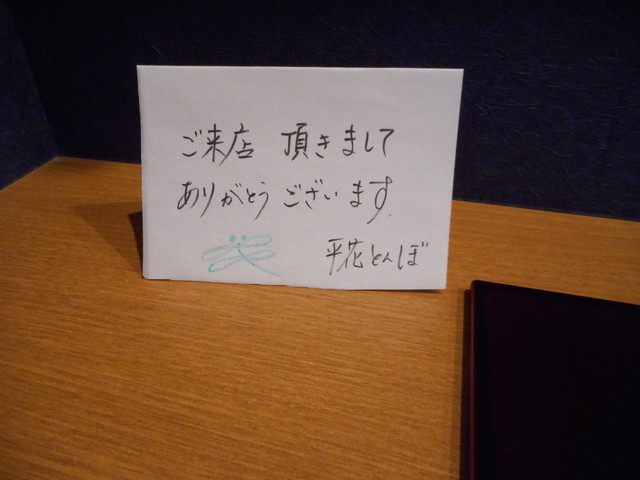 ご来店 頂きまして
ありがとうございます
平花とんぼ